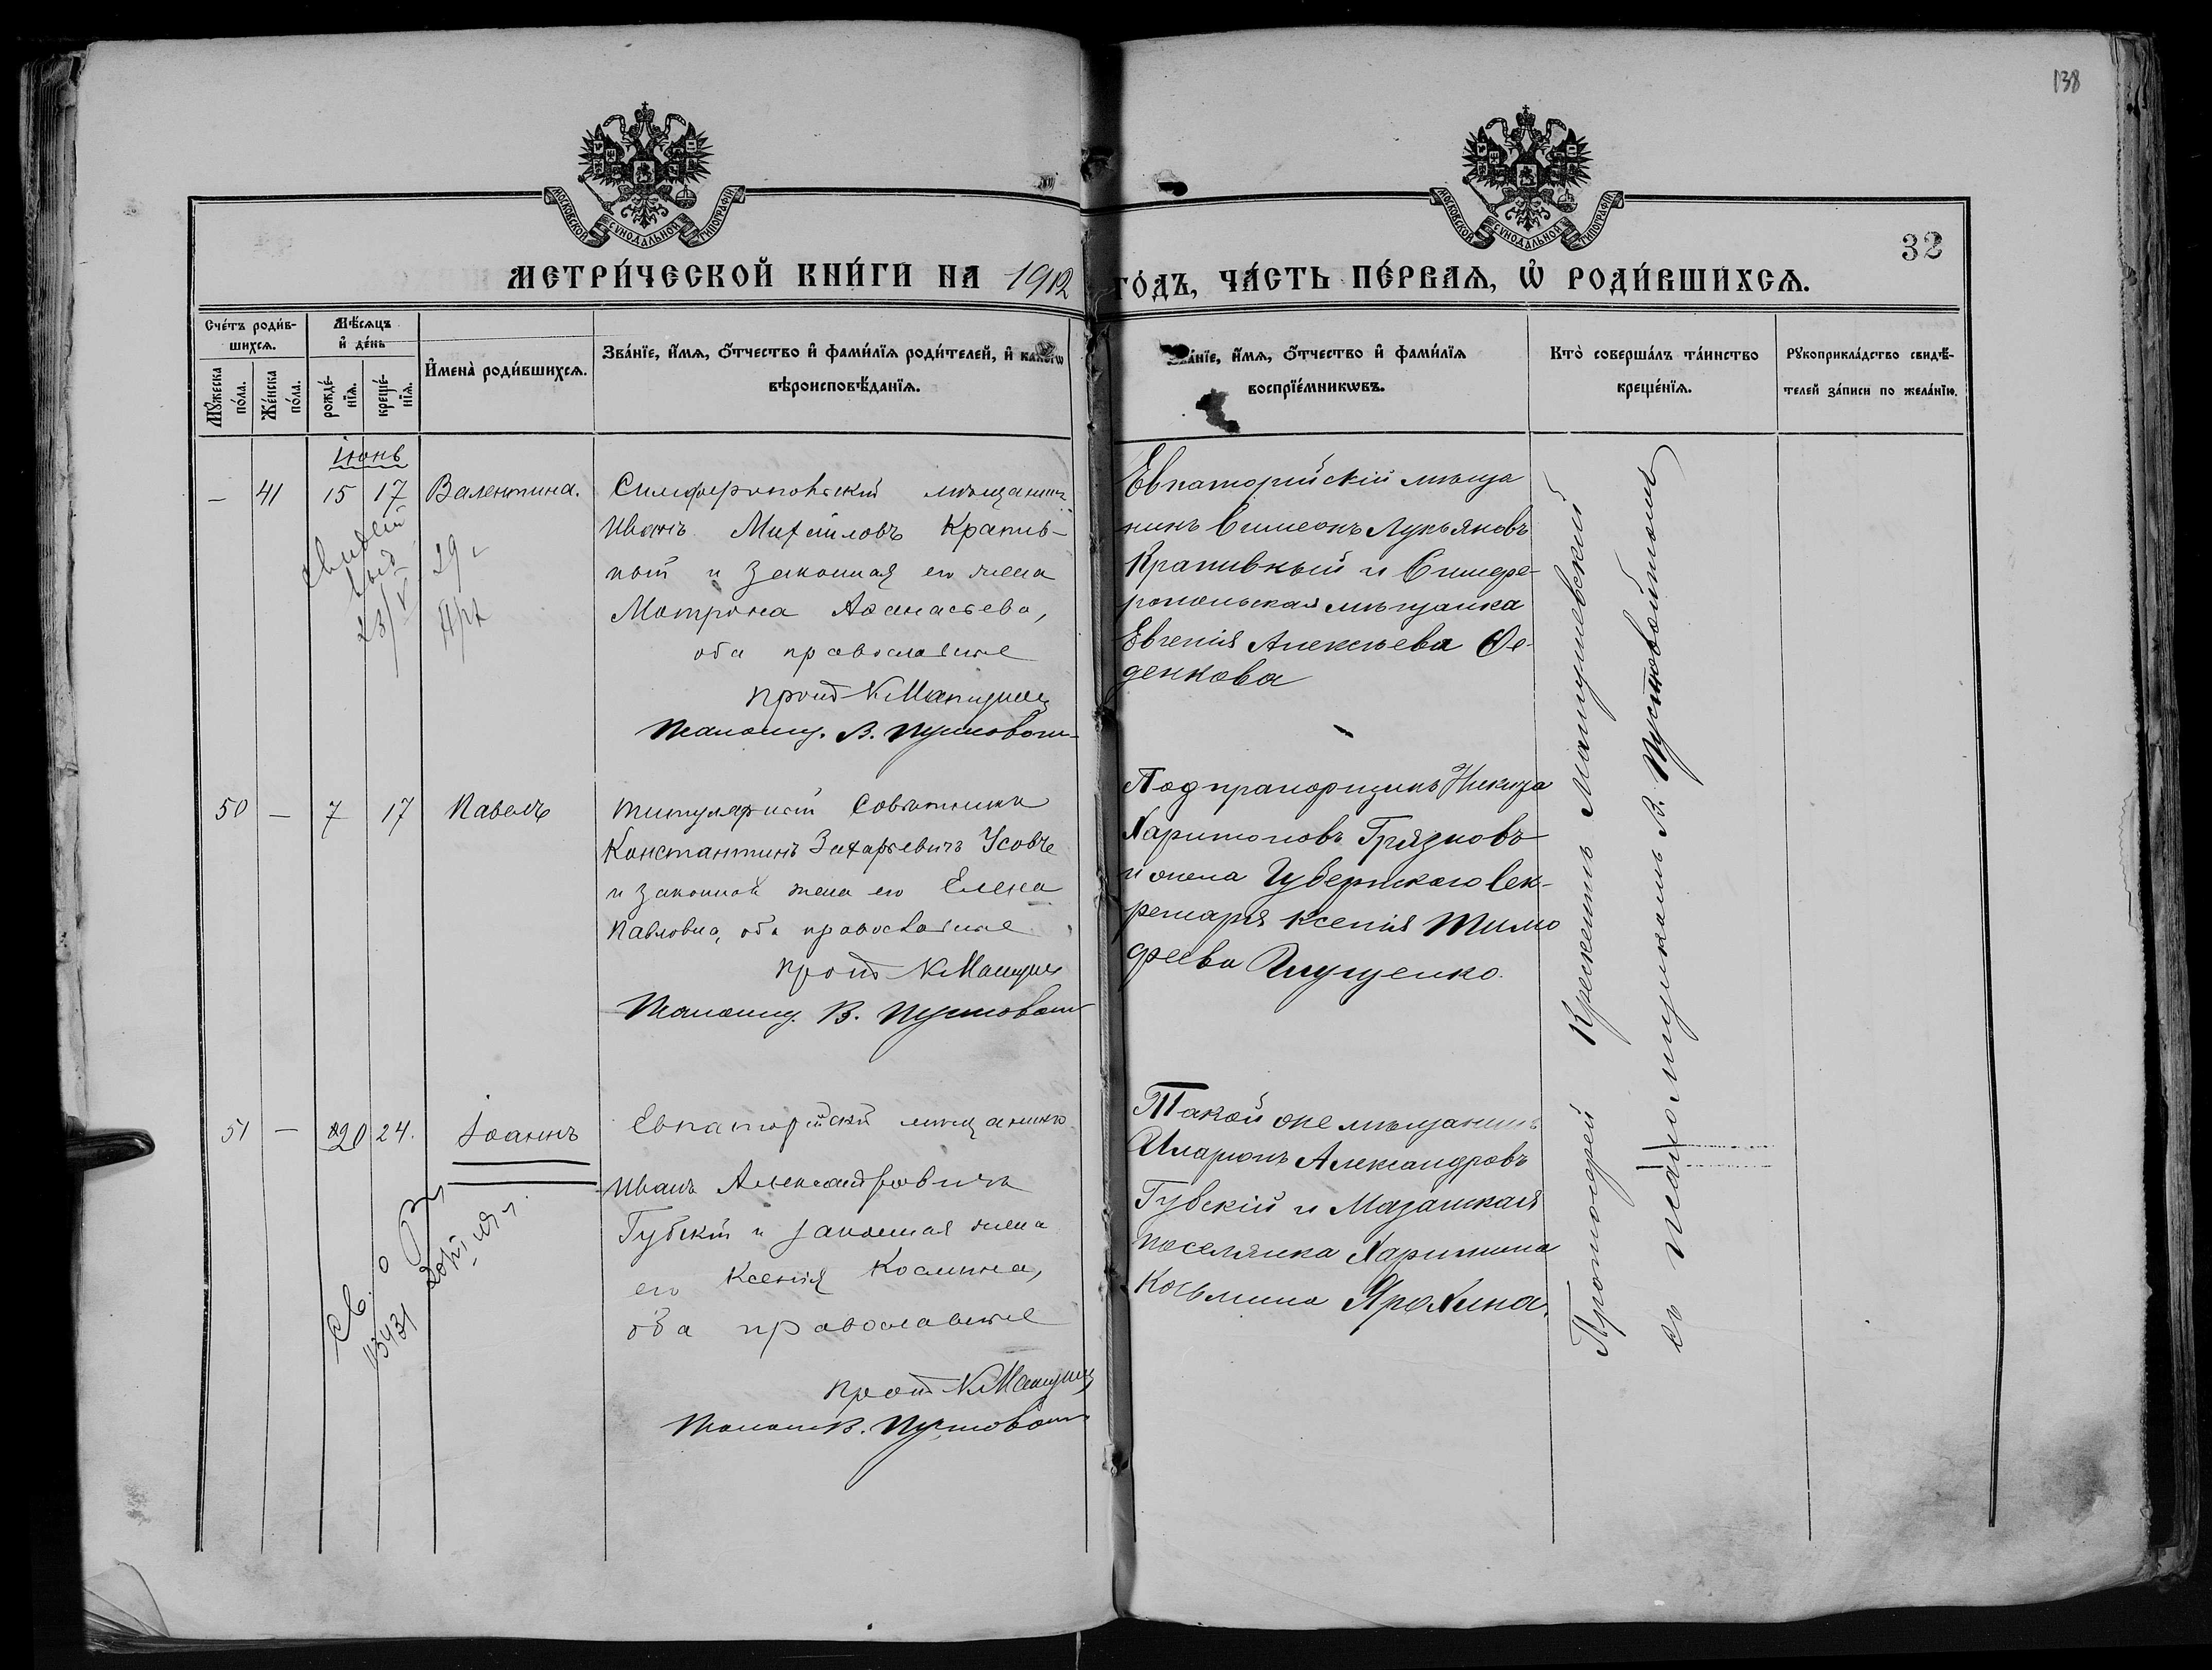 138
МОСКОВСКОЙ СУНОДАЛЬНОЙ ТИПОГРАФІИ
МОСКОВСКОЙ СУНОДАЛЬНОЙ ТИПОГРАФІИ
32
МЕТРИ́ЧЕСКОЙ КНИ́ГИ НА 1912 ГО́ДЪ, ЧА́СТЬ ПЕ́РВАѦ, Ѽ РОДИ́ВШИХСѦ.
Сче́тъ роди́в-
шихсѧ.
Мꙋ́жеска по́ла.
Же́нска по́ла.
Мѣ́сѧцъ
и҆ де́нь
рожде́-нїѧ.
креще́-нїѧ.
И҆мена̀ роди́вшихсѧ.
Зва́нїе, и҆́мѧ, ѻ҆́тчество и҆ фами́лїѧ роди́телей, и҆ како́гѡ
вѣроисповѣ́данїѧ.
Зва́нїе, и҆́мѧ, ѻ҆́тчество и҆ фами́лїѧ
воспрїе́мникѡвъ.
Кто̀ соверша́лъ та́инство
креще́нїѧ.
Рꙋкоприкла́дство свидѣ́-
телей за́писи по жела́нїю.
Іюнь
— 41 15 17 Валентина.
Симферопольскій мѣщанинъ
Иванъ Михаиловъ Крапив-
ный и законная его жена
Матрона Аѳанасьева,
оба православные
прот К Мат
Псаломщ. В. Пустовойт
Евпаторійскій мѣща
нинъ Симеонъ Лукьяновъ
Крапивный и Симфе-
ропольская мѣщанка
Евгенія Алексѣева Фе-
денкова
29
50 — 7 17 Павелъ
титулярный Совѣтникъ
Константинъ Захарьевичъ Усовъ
и законная жена его Елена
Павловна, оба православные
прот К Мат
Псаломщ. В. Пустовойт
Подпрапорщикъ Никита
Харитоновъ Грязновъ
и жена Губернскаго Сек-
ретаря Ксенія Тимо
феева Глущенко.
51 — 20 24. Іоаннъ
Евпаторійскій мѣщанинъ
Иванъ Александровичъ
Губскій и законная жена
его Ксенія Космина,
оба православные
прот К Мат
Псаломщ В. Пустовойт
Такой же мѣщанинъ
Иларіонъ Александровъ
Губскій и Мазанская
поселянка Харитина
Косьмина Ярохина.
13431
Протоіерей Крыжевскій
съ псаломщикомъ В. Пустовойтомъ